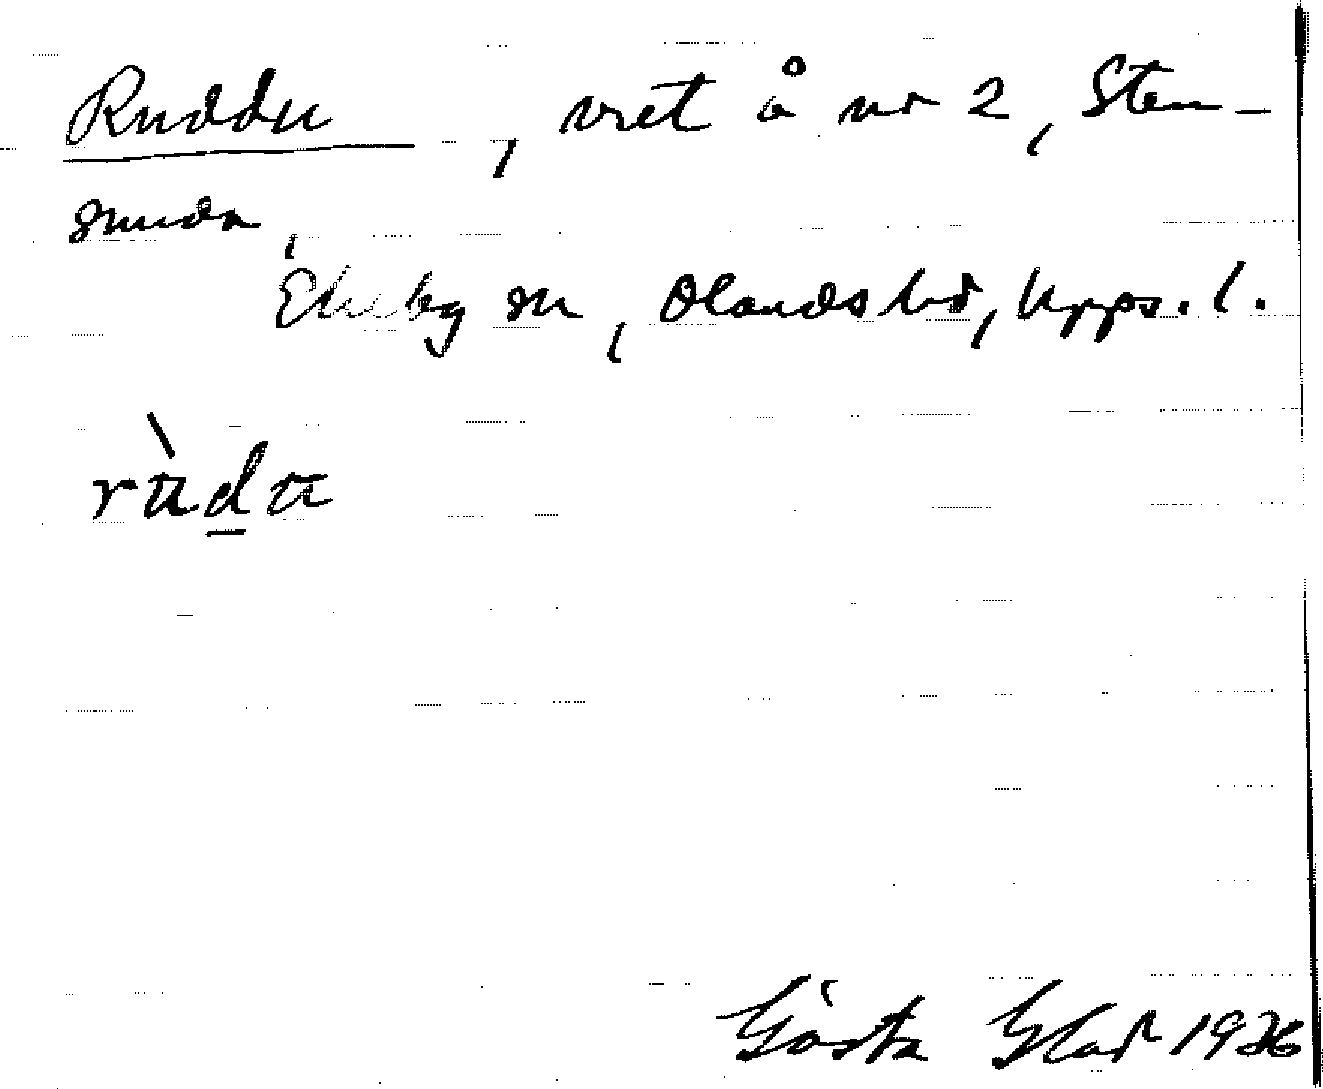 Ruddu, vret å nr 2, Sten-
sunda,
Ekeby sn, Olands hd, Upps. l.
rùdu
Gösta Glad 1926